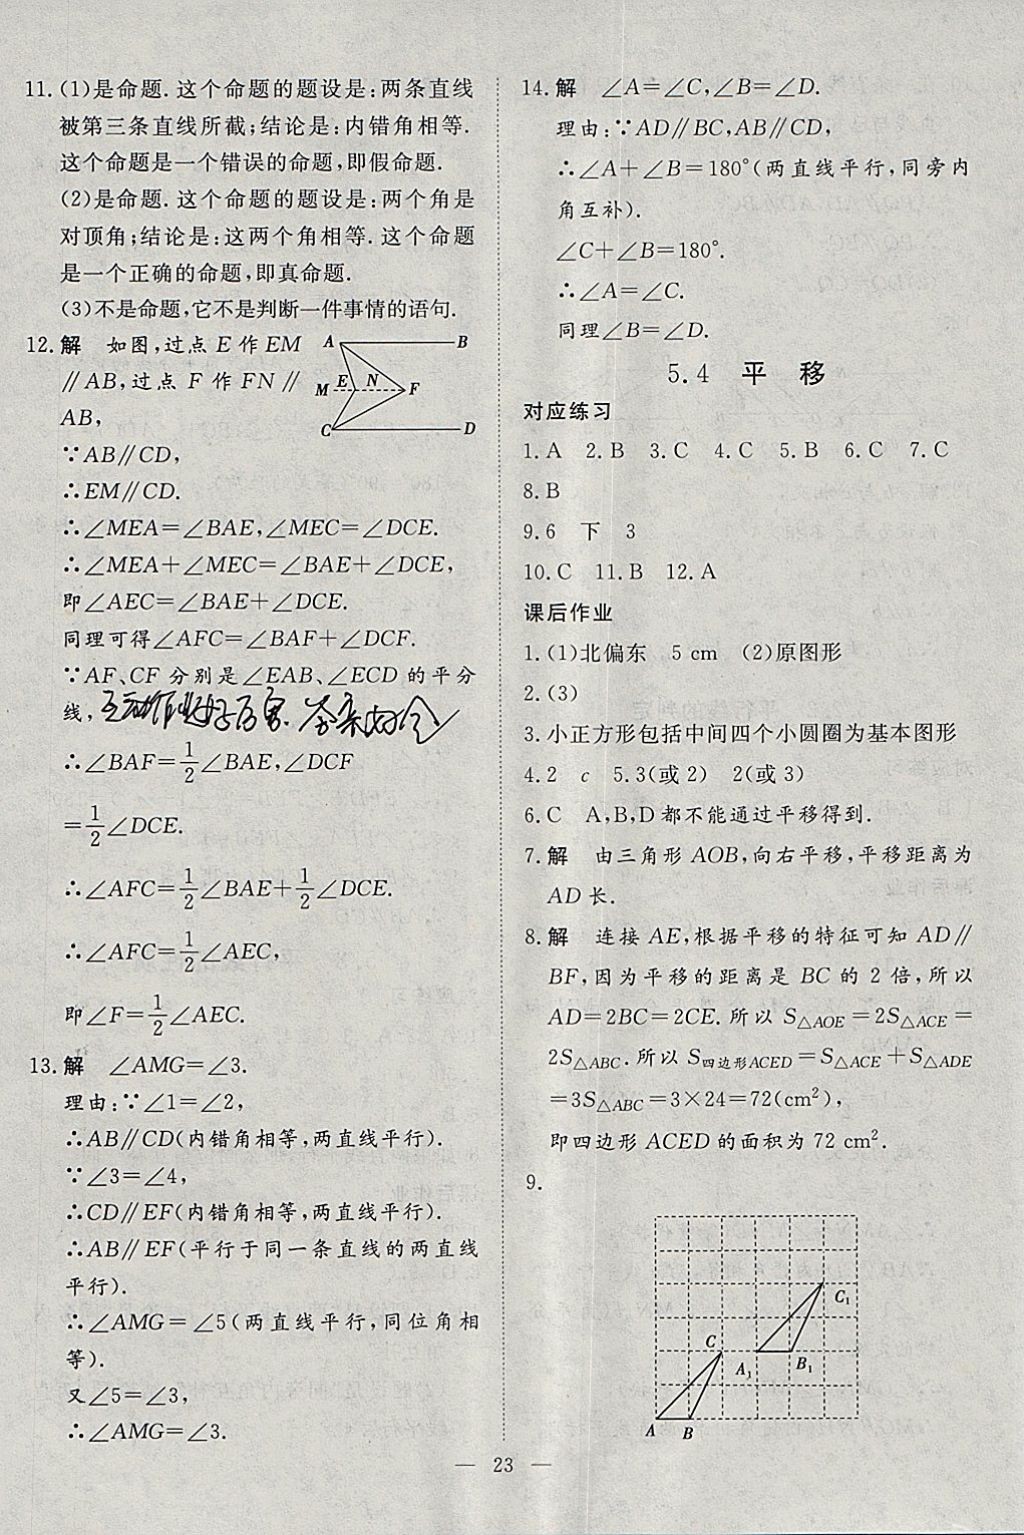 11.(1)是命题.这个命题的题设是:两条直线
被第三条直线所截;结论是:内错角相等.
这个命题是一个错误的命题,即假命题.
(2)是命题.这个命题的题设是:两个角是
对顶角;结论是:这两个角相等.这个命题
是一个正确的命题,即真命题.
(3)不是命题,它不是判断一件事情的语句.
12.解 如图,过点E作EM
∥AB,过点F作FN∥
AB,
A B
M E N F
C D
∵AB∥CD,
∴EM∥CD.
∴∠MEA=∠BAE,∠MEC=∠DCE.
∴∠MEA+∠MEC=∠BAE+∠DCE,
即∠AEC=∠BAE+∠DCE.
同理可得∠AFC=∠BAF+∠DCF.
∵AF、CF分别是∠EAB、∠ECD的平分
线,
∴∠BAF=1/2∠BAE,∠DCF
=1/2∠DCE.
∴∠AFC=1/2∠BAE+1/2∠DCE.
∴∠AFC=1/2∠AEC,
即∠F=1/2∠AEC.
13.解 ∠AMG=∠3.
理由:∵∠1=∠2,
∴AB∥CD(内错角相等,两直线平行).
∵∠3=∠4,
∴CD∥EF(内错角相等,两直线平行).
∴AB∥EF(平行于同一条直线的两直线
平行).
∴∠AMG=∠5(两直线平行,同位角相
等).
又∠5=∠3,
∴∠AMG=∠3.
14.解 ∠A=∠C,∠B=∠D.
理由:∵AD∥BC,AB∥CD,
∴∠A+∠B=180°(两直线平行,同旁内
角互补).
∠C+∠B=180°.
∴∠A=∠C.
同理∠B=∠D.
5.4 平 移
对应练习
1.A 2.B 3.C 4.C 5.B 6.C 7.C
8.B
9.6 下 3
10.C 11.B 12.A
课后作业
1.(1)北偏东 5 cm (2)原图形
2.(3)
3.小正方形包括中间四个小圆圈为基本图形
4.2 c 5.3(或2) 2(或3)
6.C A,B,D都不能通过平移得到.
7.解 由三角形AOB,向右平移,平移距离为
AD长.
8.解 连接AE,根据平移的特征可知AD∥
BF,因为平移的距离是BC的2倍,所以
AD=2BC=2CE.所以S△AOE=2S△ACE=
2S△ABC.所以S四边形ACED=S△ACE+S△ADE
=3S△ABC=3×24=72(cm²),
即四边形ACED的面积为72 cm².
9.
C₁
C A₁ B₁
A B
— 23 —